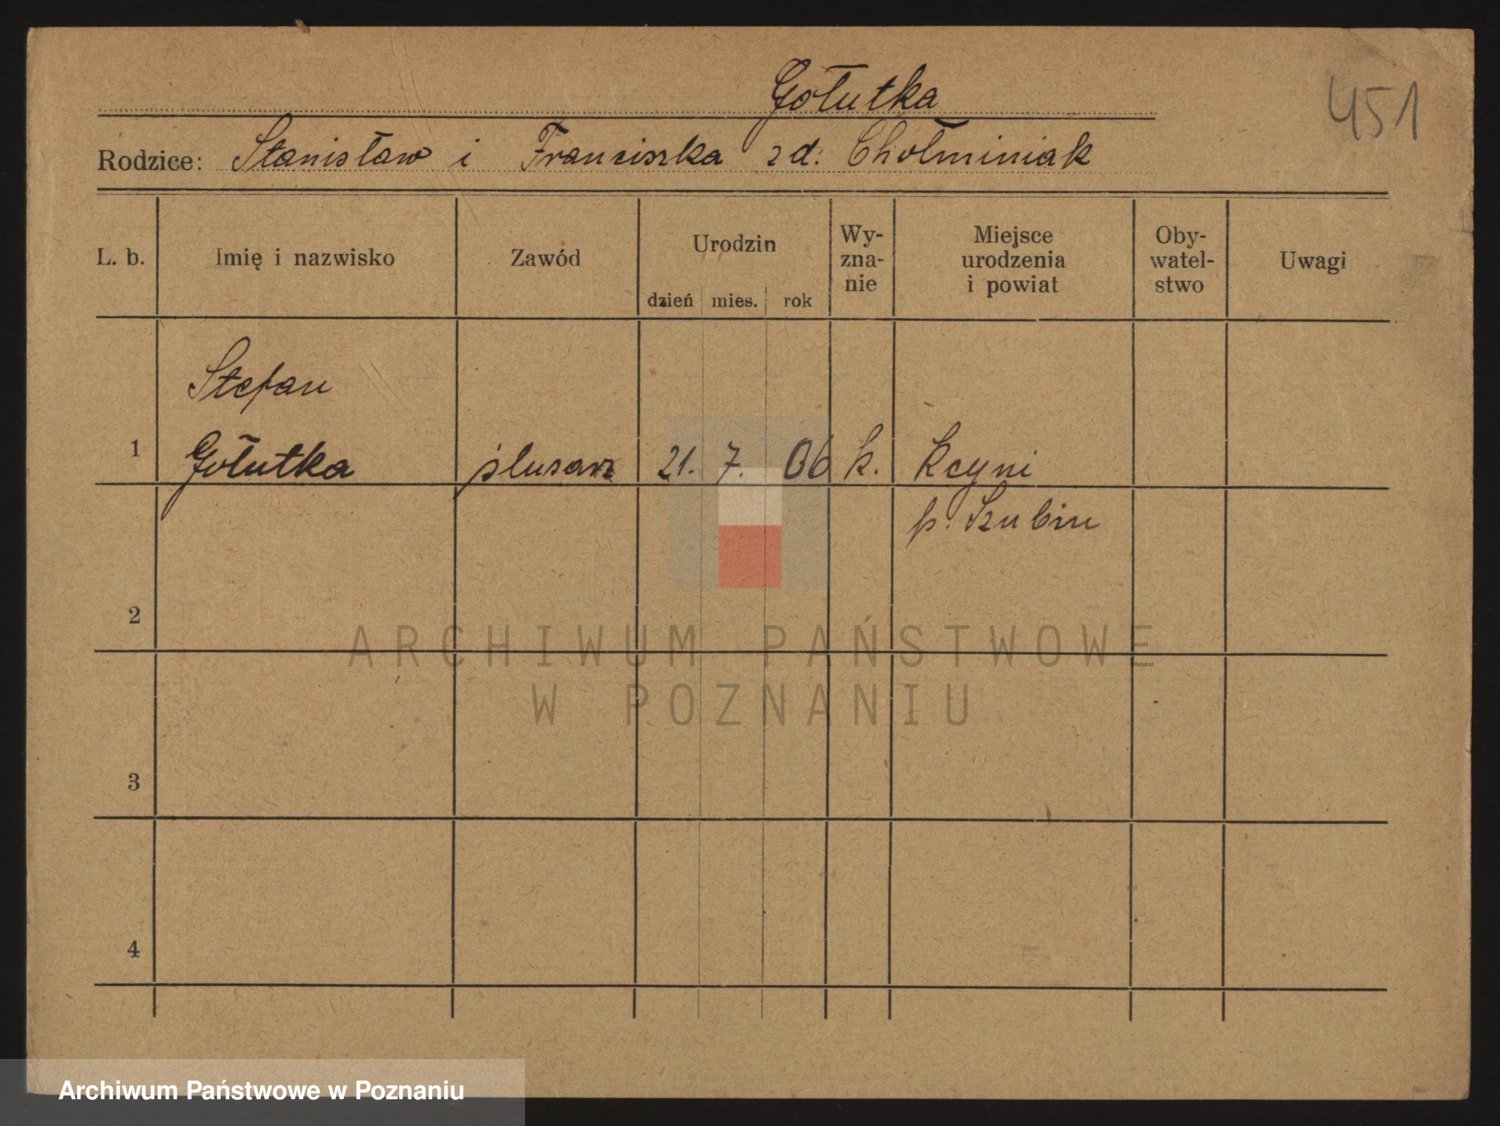 Gołutka
451
Rodzice: Stanisław i Franciszka zd. Chołminiak
L. b.
Imię i nazwisko
Zawód
Urodzin
dzień mies. rok
Wy-
zna-
nie
Miejsce
urodzenia
i powiat
Oby-
watel-
stwo
Uwagi
Stefan
1 Gołutka ślusarz 21. 7. 06 k. Kcyni
p. Szubin
2
ARCHIWUM PAŃSTWOWE
W POZNANIU
3
4
Archiwum Państwowe w Poznaniu